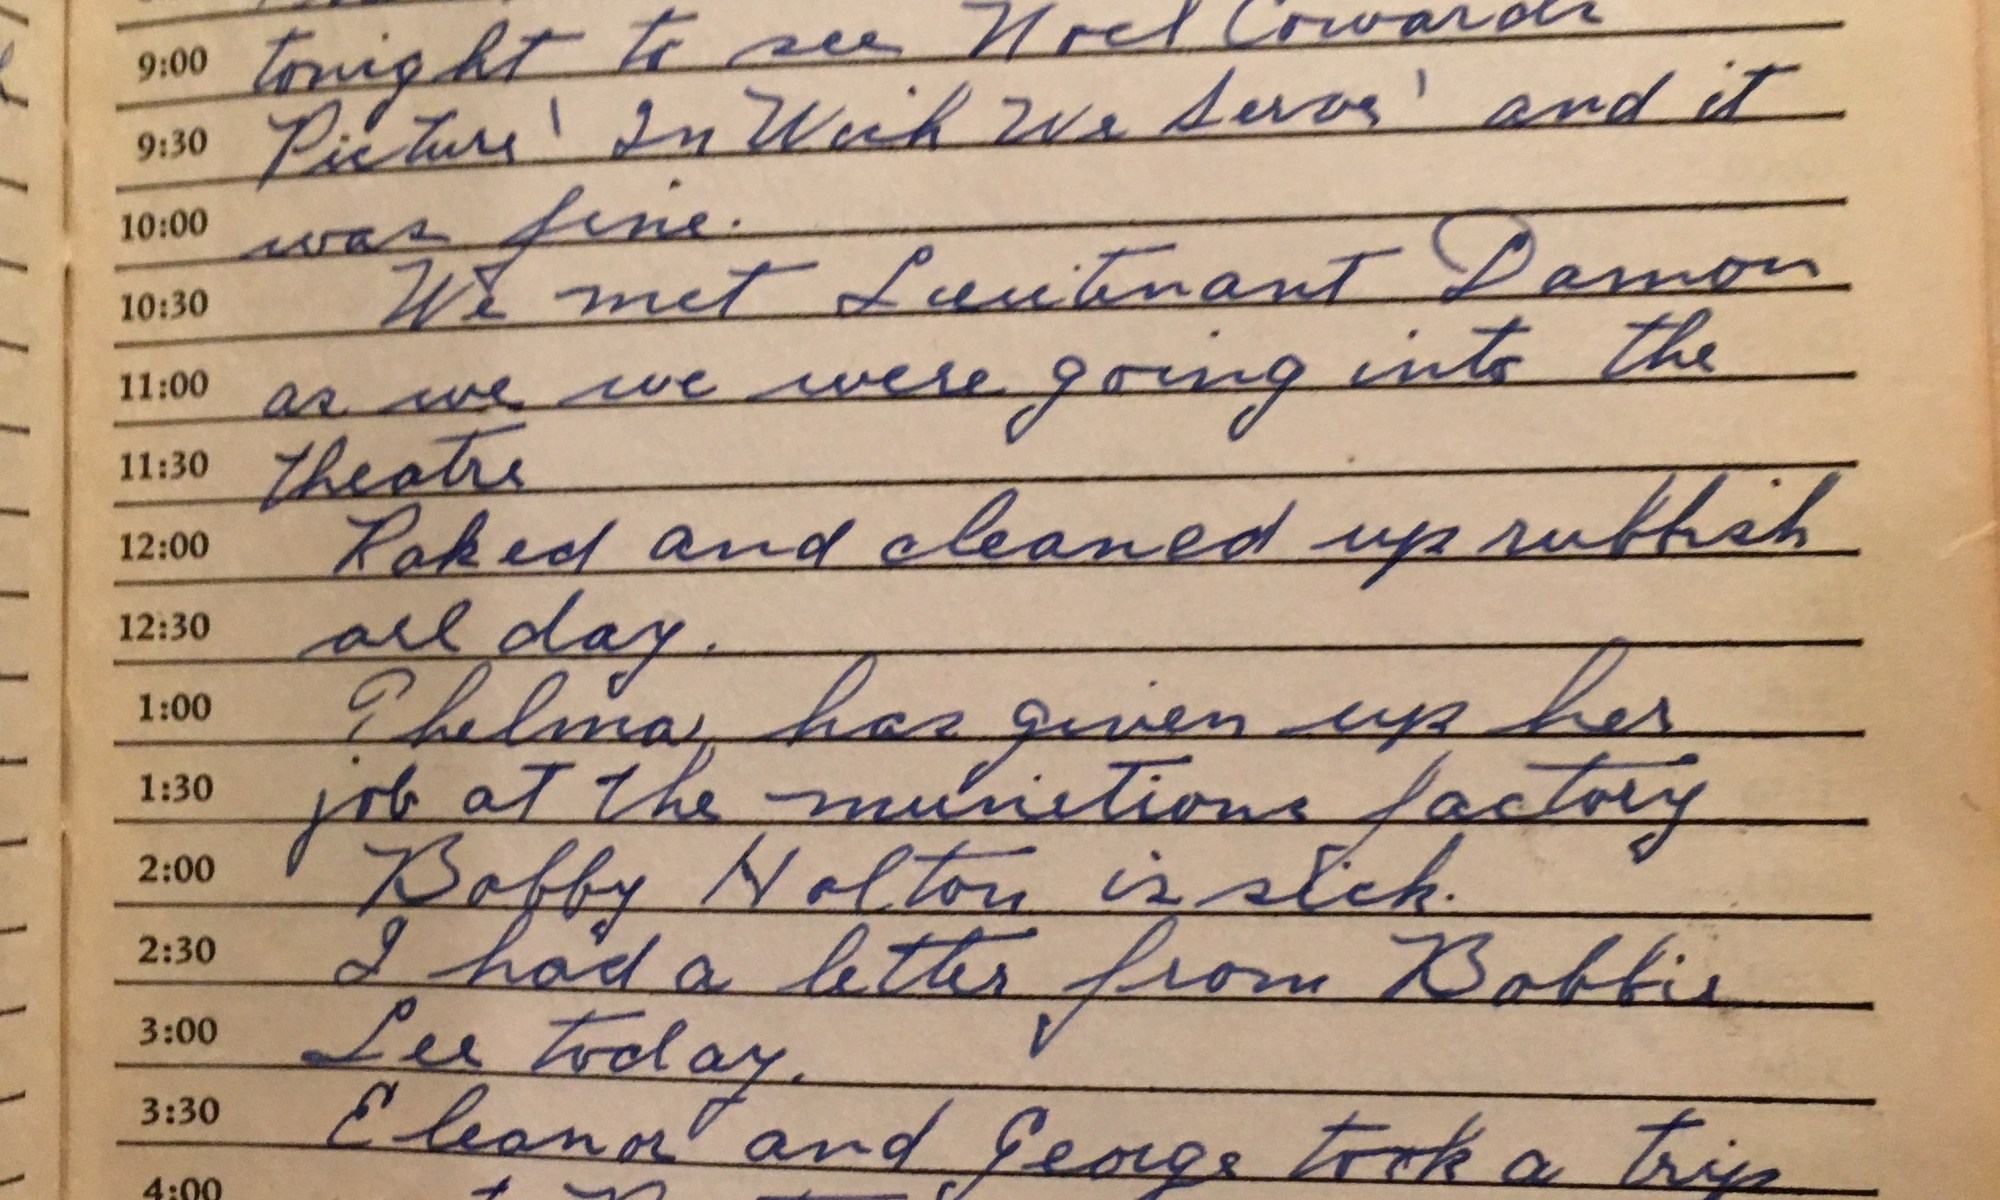 9:00 tonight to see Noel Cowards
9:30 Picture 'In Wich We Serve' and it
10:00 was fine.
10:30 We met Lieutenant Damon
11:00 as we we were going into the
11:30 theatre
12:00 Raked and cleaned up rubbish
12:30 all day.
1:00 Thelma, has given up her
1:30 job at the munitions factory
2:00 Bobby Holton is sick.
2:30 I had a letter from Bobbie
3:00 Lee today.
3:30 Eleanor and George took a trip
4:00